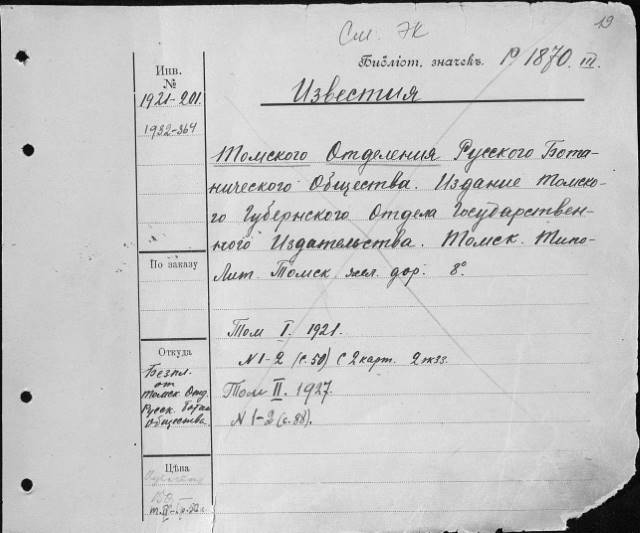 См. ЭК
19
Библіот. значекъ. Р. 1870. III.
Инв.
№
1921-201.
1932-364
Известия
Томского Отделения Русского Бота-
нического Общества. Издание Томско-
го Губернского Отдела Государствен-
ного Издательства. Томск. Типо-
Лит. Томск. жел. дор. 8°.
По заказу
Том I. 1921.
N 1-2 (с. 50) с 2 карт. 2 экз.
Том II. 1927.
N 1-2 (с. 88).
Откуда
Безпл.
от
Томск. Отд.
Русск. Ботан.
Общества.
Цѣна